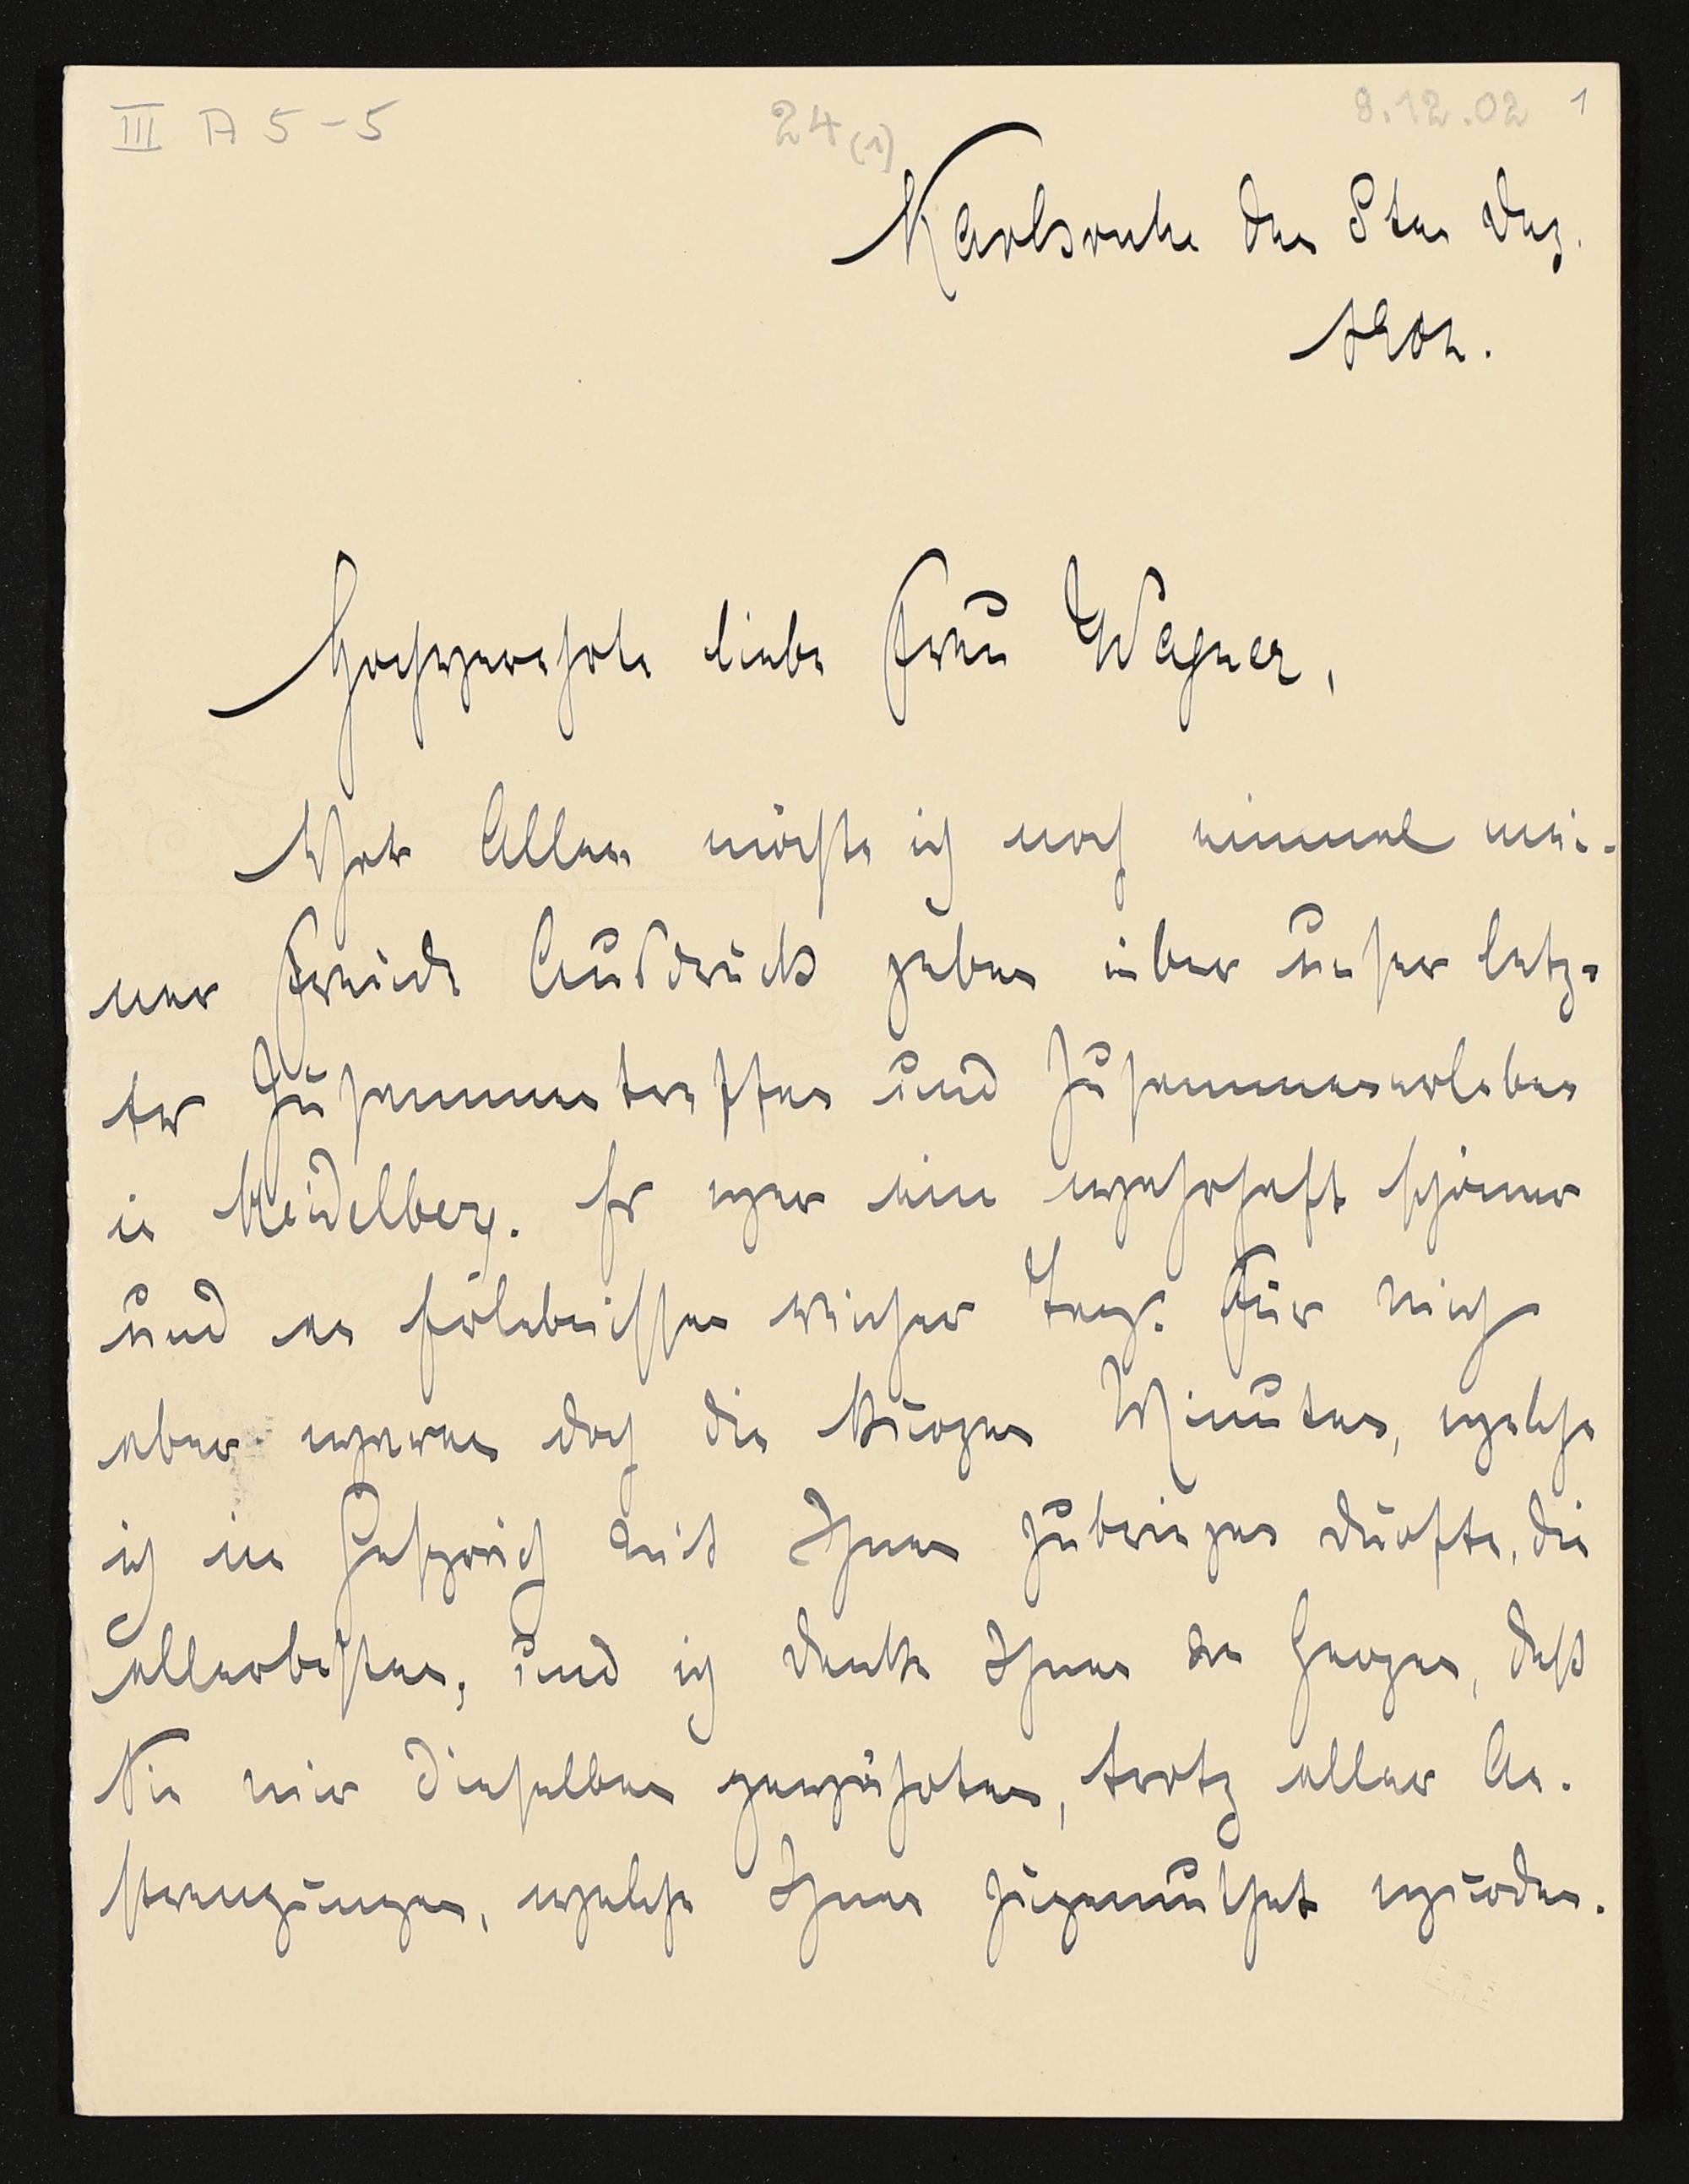 III A 5-5 24(1) 8.12.02 1
Karlsruhe den 8ten Dez.
1902.
Hochverehrte liebe Frau Wagner,
Vor Allem möchte ich noch einmal mei-
ner Freude Ausdruck geben über unser letz-
tes Zusammentreffen und Zusammenerleben
in Heidelberg. Es war ein wahrhaft schöner
und an Erlebnissen reicher Tag. Für mich
aber waren doch die kurzen Minuten, welche
ich im Gespräch mit Ihnen zubringen durfte, die
allerbesten, und ich danke Ihnen von Herzen, daß
Sie mir dieselben gewährten, trotz aller An-
strengungen, welche Ihnen zugemuthet wurden.